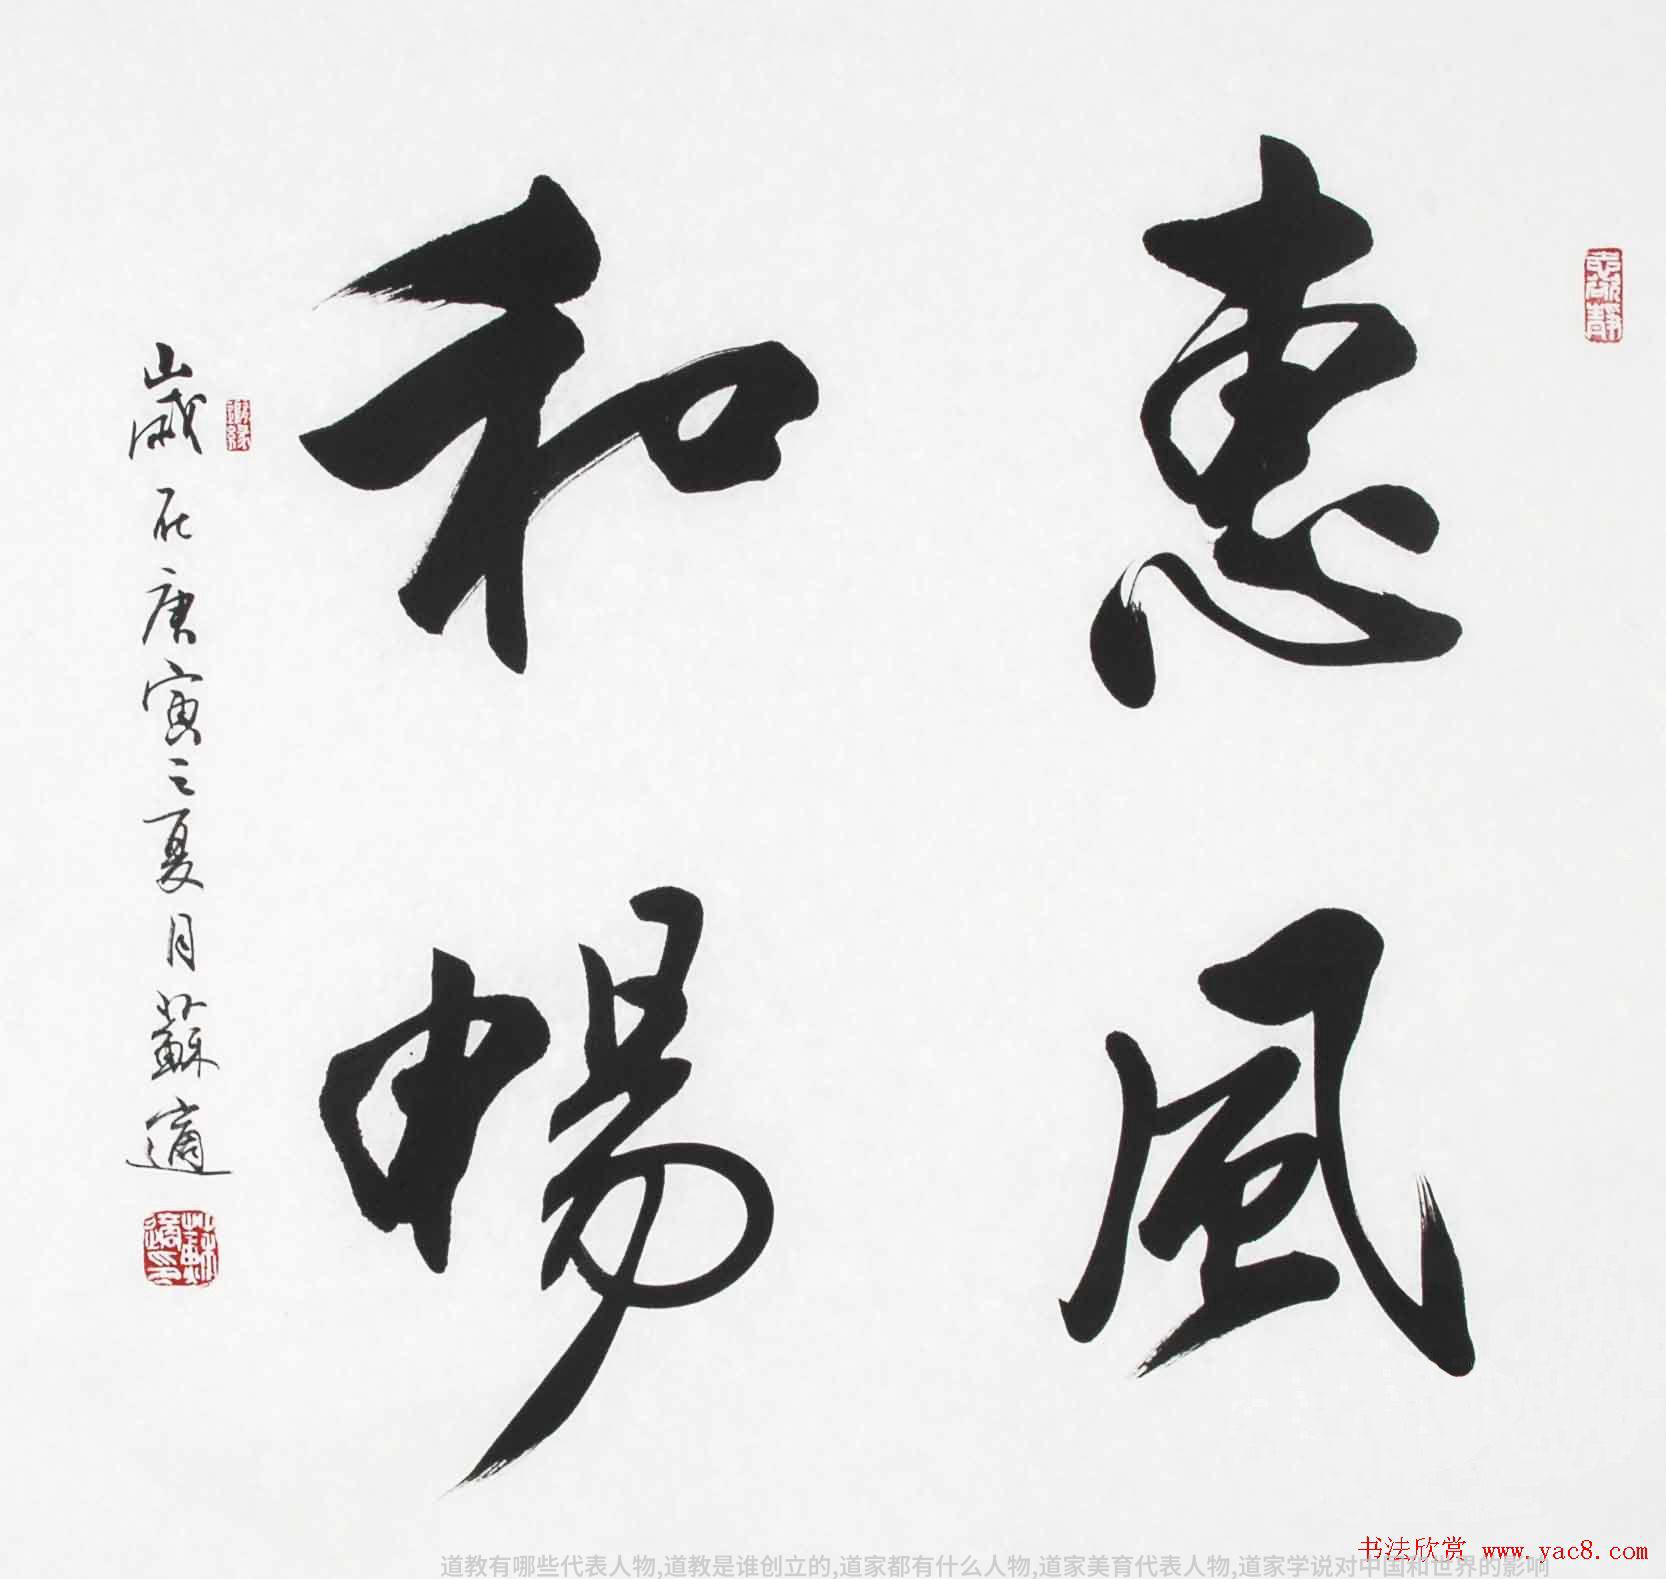 惠風
和暢
歲在庚寅之夏月蘇適
蘇適之印
书法欣赏 www.yac8.com
道教有哪些代表人物,道教是谁创立的,道家都有什么人物,道家美育代表人物,道家学说对中国和世界的影响